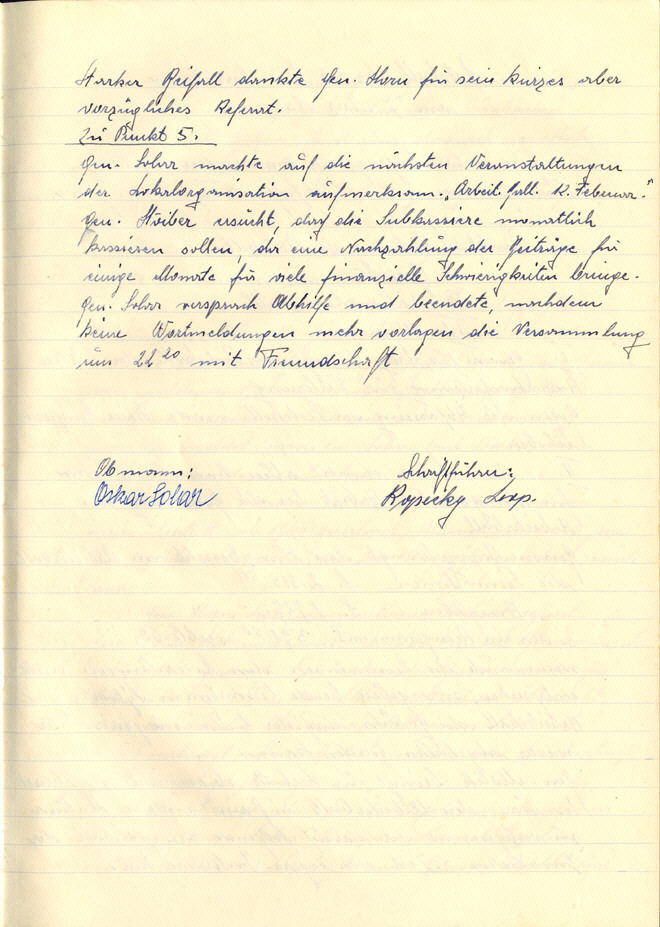 Starker Beifall dankte Gen. Horn für sein kurzes aber
vorzügliches Referat.
Zu Punkt 5.
Gen. Solar machte auf die nächsten Veranstaltungen
der Lokalorganisation aufmerksam. „Arbeit. Ball. 12. Febenar."
Gen. Stöiber ersucht, daß die Subkassiere monatlich
kassieren sollen, da eine Nachzahlung der Beiträge für
einige Monate für viele finanzielle Schwierigkeiten bringe.
Gen. Solar versprach Abhilfe und beendete, nachdem
keine Wortmeldungen mehr vorlagen die Versammlung
um 22²⁰ mit Freundschaft
Obmann: Schriftführer:
Oskar Solar Kopecky